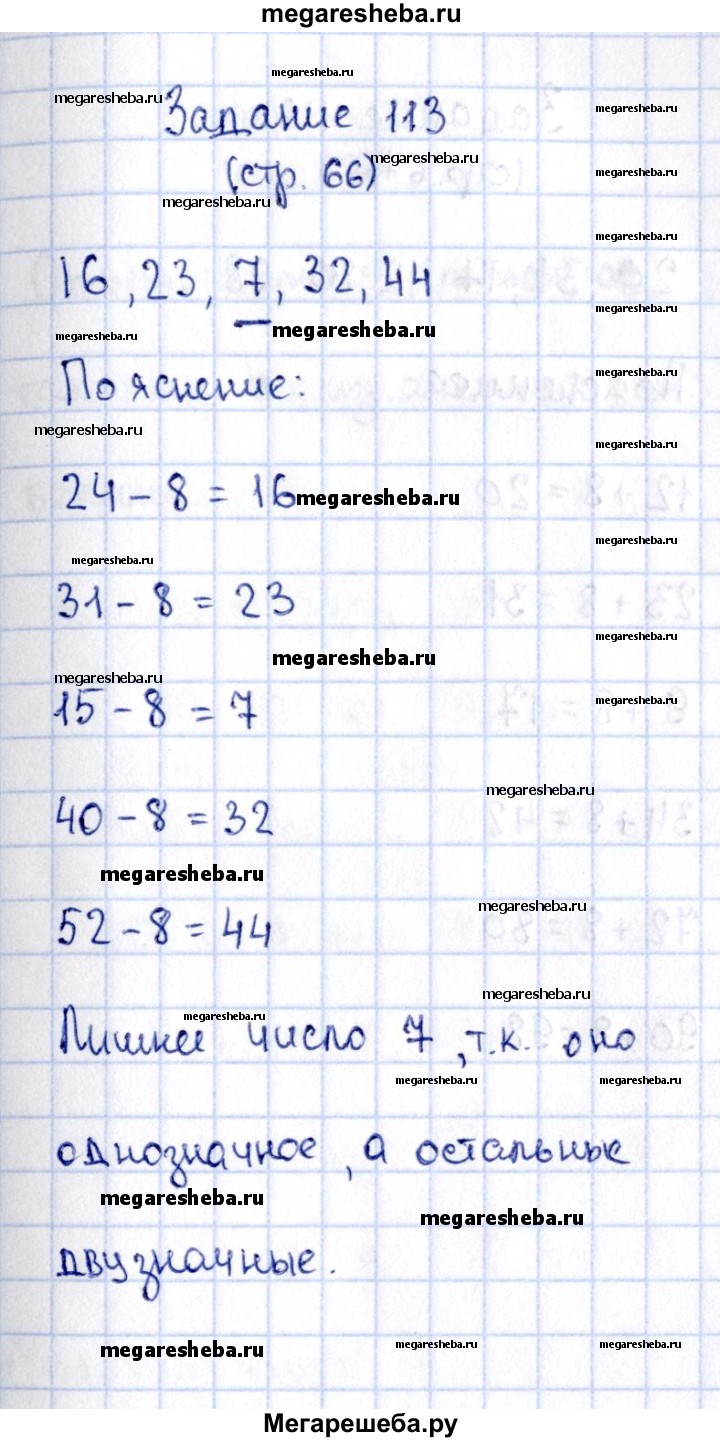 megaresheba.ru
megaresheba.ru
megaresheba.ru
Задание 113
megaresheba.ru
megaresheba.ru
(стр. 66)
megaresheba.ru
megaresheba.ru
megaresheba.ru
16, 23, 7, 32, 44
megaresheba.ru
megaresheba.ru
megaresheba.ru
Пояснение:
megaresheba.ru
megaresheba.ru
megaresheba.ru
24 - 8 = 16
megaresheba.ru
megaresheba.ru
megaresheba.ru
31 - 8 = 23
megaresheba.ru
megaresheba.ru
megaresheba.ru
megaresheba.ru
15 - 8 = 7
megaresheba.ru
40 - 8 = 32
megaresheba.ru
megaresheba.ru
52 - 8 = 44
megaresheba.ru
megaresheba.ru
Лишнее число 7, т.к. оно
megaresheba.ru
megaresheba.ru
однозначное, а остальные
megaresheba.ru
megaresheba.ru
двузначные.
megaresheba.ru
megaresheba.ru
megaresheba.ru
Мегарешеба.ру